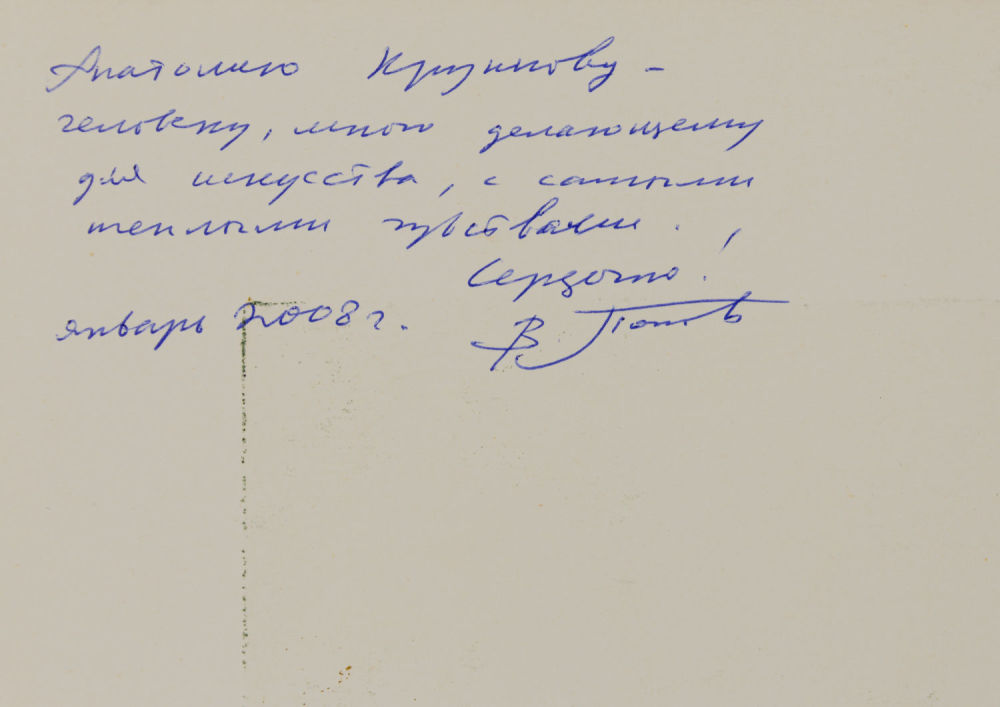 Анатолию
человеку, много делающему
для искусства, с самыми
теплыми чувствами.
Сердечно!
январь 2008 г. В